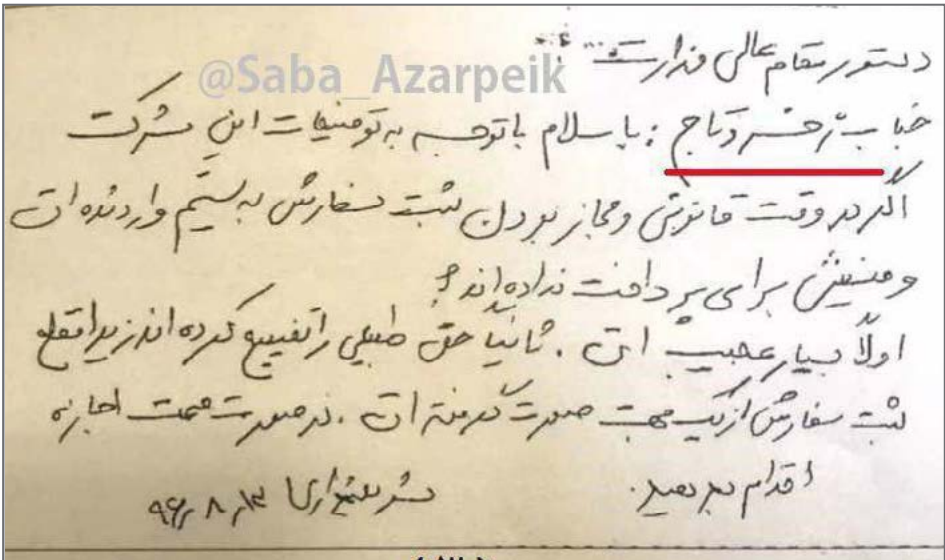 دستور مقام عالی وزارت...
@Saba_Azarpeik
جناب خسروتاج : با سلام با توجه به توضیحات این شرکت
اگر در وقت قانونی و مجاز بودن ثبت سفارش به سیستم وارد شده است
و منیفیش برای پرداخت نداده اند؟
اولاً بسیار عجیب است . ثانیاً حق طبیعی را تضییع کرده اند زیرا قطع
ثبت سفارش از یک جهت صورت گرفته است . در صورت صحت اجازه
اقدام بدهید.
شریعتمداری ۹۶,۸,۱۳